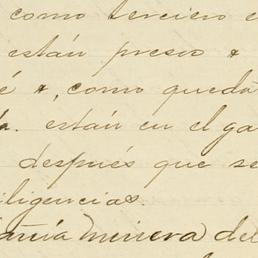 como tercero e
están presos &
é &, como queda
a. están en el ga
después que se
iligencias.
añía minera del